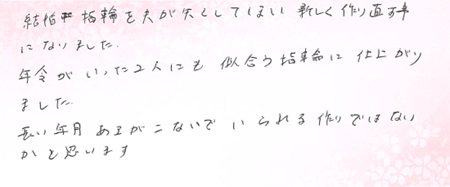 結婚指輪を夫が失くしてしまい 新しく作り直す事
になりました。
年令がいった2人にも 似合う指輪に 仕上がり
ました
長い年月 あきがこないで いられる 作りではない
かと思います